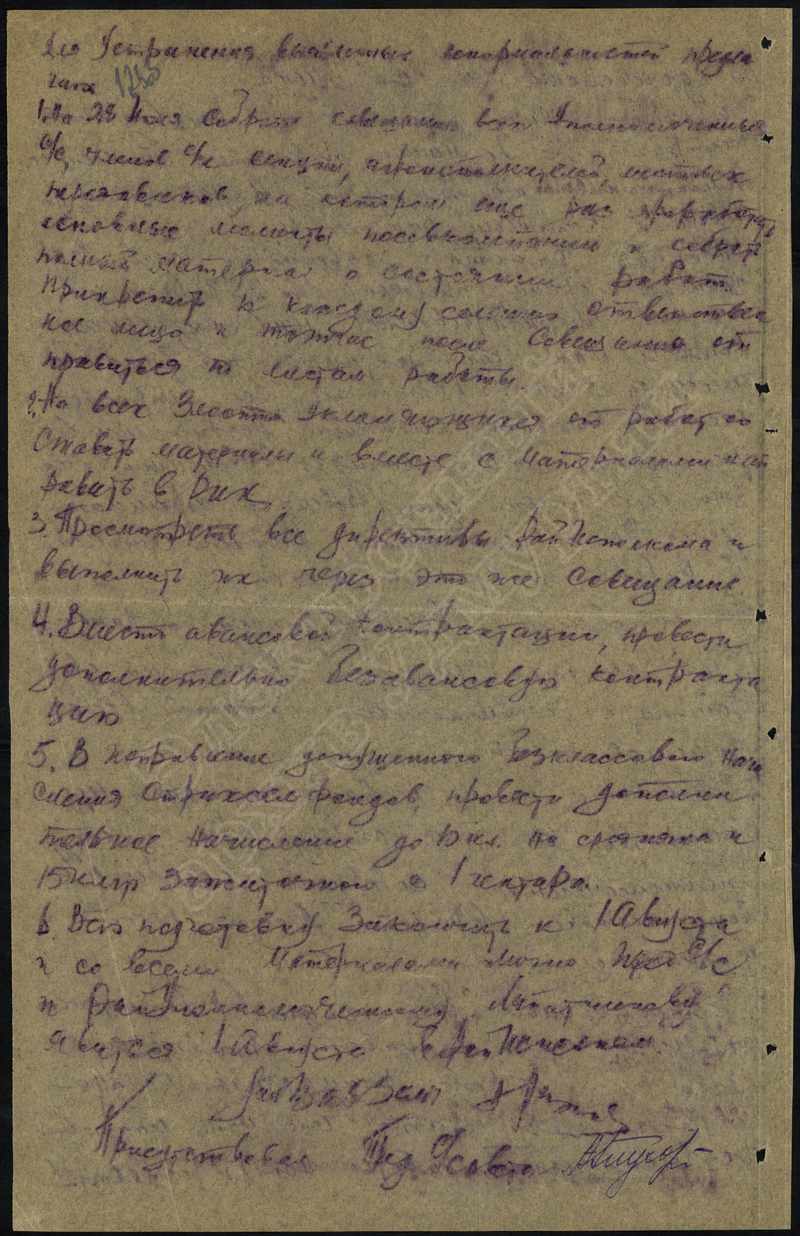 Для Устранения выявленных ненормальностей предла
гаю
1. На 28 Июля Собрать совещание всех Уполномоченных
с/с, членов с/х секций, агроисполнителей, местных
на котором еще раз проработать
основные моменты посевкампании и собрать
полный материал о состоянии работ
Прикрепить к каждому селению ответствен
ное лицо и тотчас после Совещания от
правиться по местам работы.
2. На всех Злостно Уклоняющихся от работ со
ставить материалы и вместе с материалами нап
равить в Рик
3. Просмотреть все директивы РайИсполкома и
выполнить их через это же Совещание
4. Вместо авансовой контрактации, провести
дополнительно Безавансовую контракта
цию
5. В исправление допущенного безклассового начи
сления Страхсем фондов, провести дополни
тельное начисление до 10 кл. на средняка и
15 клгр зажиточного с 1 гектара.
6. Всю подготовку Закончить к 1 Августа
и со всеми Материалами лично Пред с/с
и РайУполномоченному
явится 1 Августа в РайИсполком.
Присутствовал Пред. с/совета